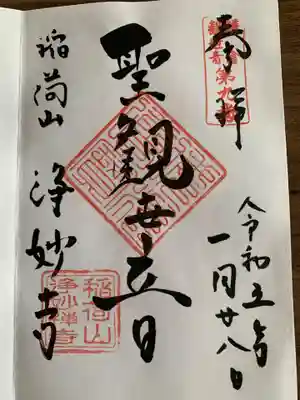 奉拝
第九番
令和五年
一月廿八日
聖觀世音
稲荷山
浄妙寺
稲荷山
浄妙禅寺